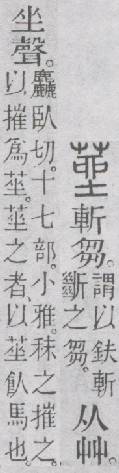 莝斬芻。謂以鈇斬斷之芻。从艸。
坐聲。麤臥切。十七部。小雅。秣之摧之。以摧為莝。莝之者、以莝飤馬也。